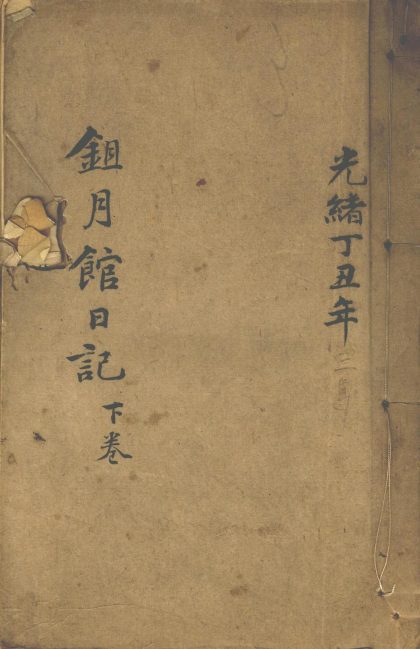 光緒丁丑年
鉏月館日記
下卷